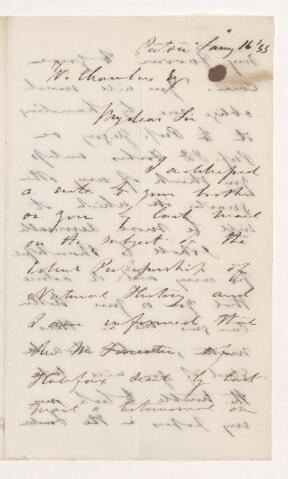 Pictou Jany 16th/55
W. Chambers Esq
My dear Sir
I addressed
a note to your brother
or you by last mail
on the subject of the
Professorship of
Natural History and
I am informed that
Mr. W. of
Halifax sent by last
mail a testimonial on